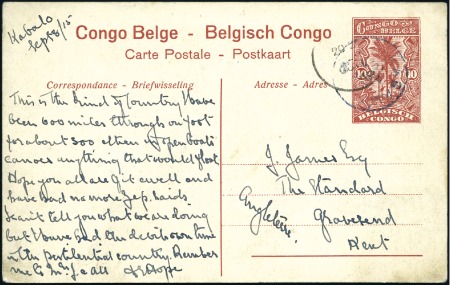 Kabalo
Sept 8/15
Congo Belge - Belgisch Congo
Carte Postale - Postkaart
CONGO BELGE
10 10
BELGISCH CONGO
Correspondance - Briefwisseling
Adresse - Adres
This is the kind of country I have
been 600 miles through on foot
for about 300 others open boats
canoes anything that would float
Hope you all are fit & well and
have had no more Zep. raids.
I can't tell you what we are doing
but I have had the devils own time
in this pestilential country. Remember
me to Mrs. J & all
J. James Esq
The Standard
Gravesend
Kent
Angleterre.